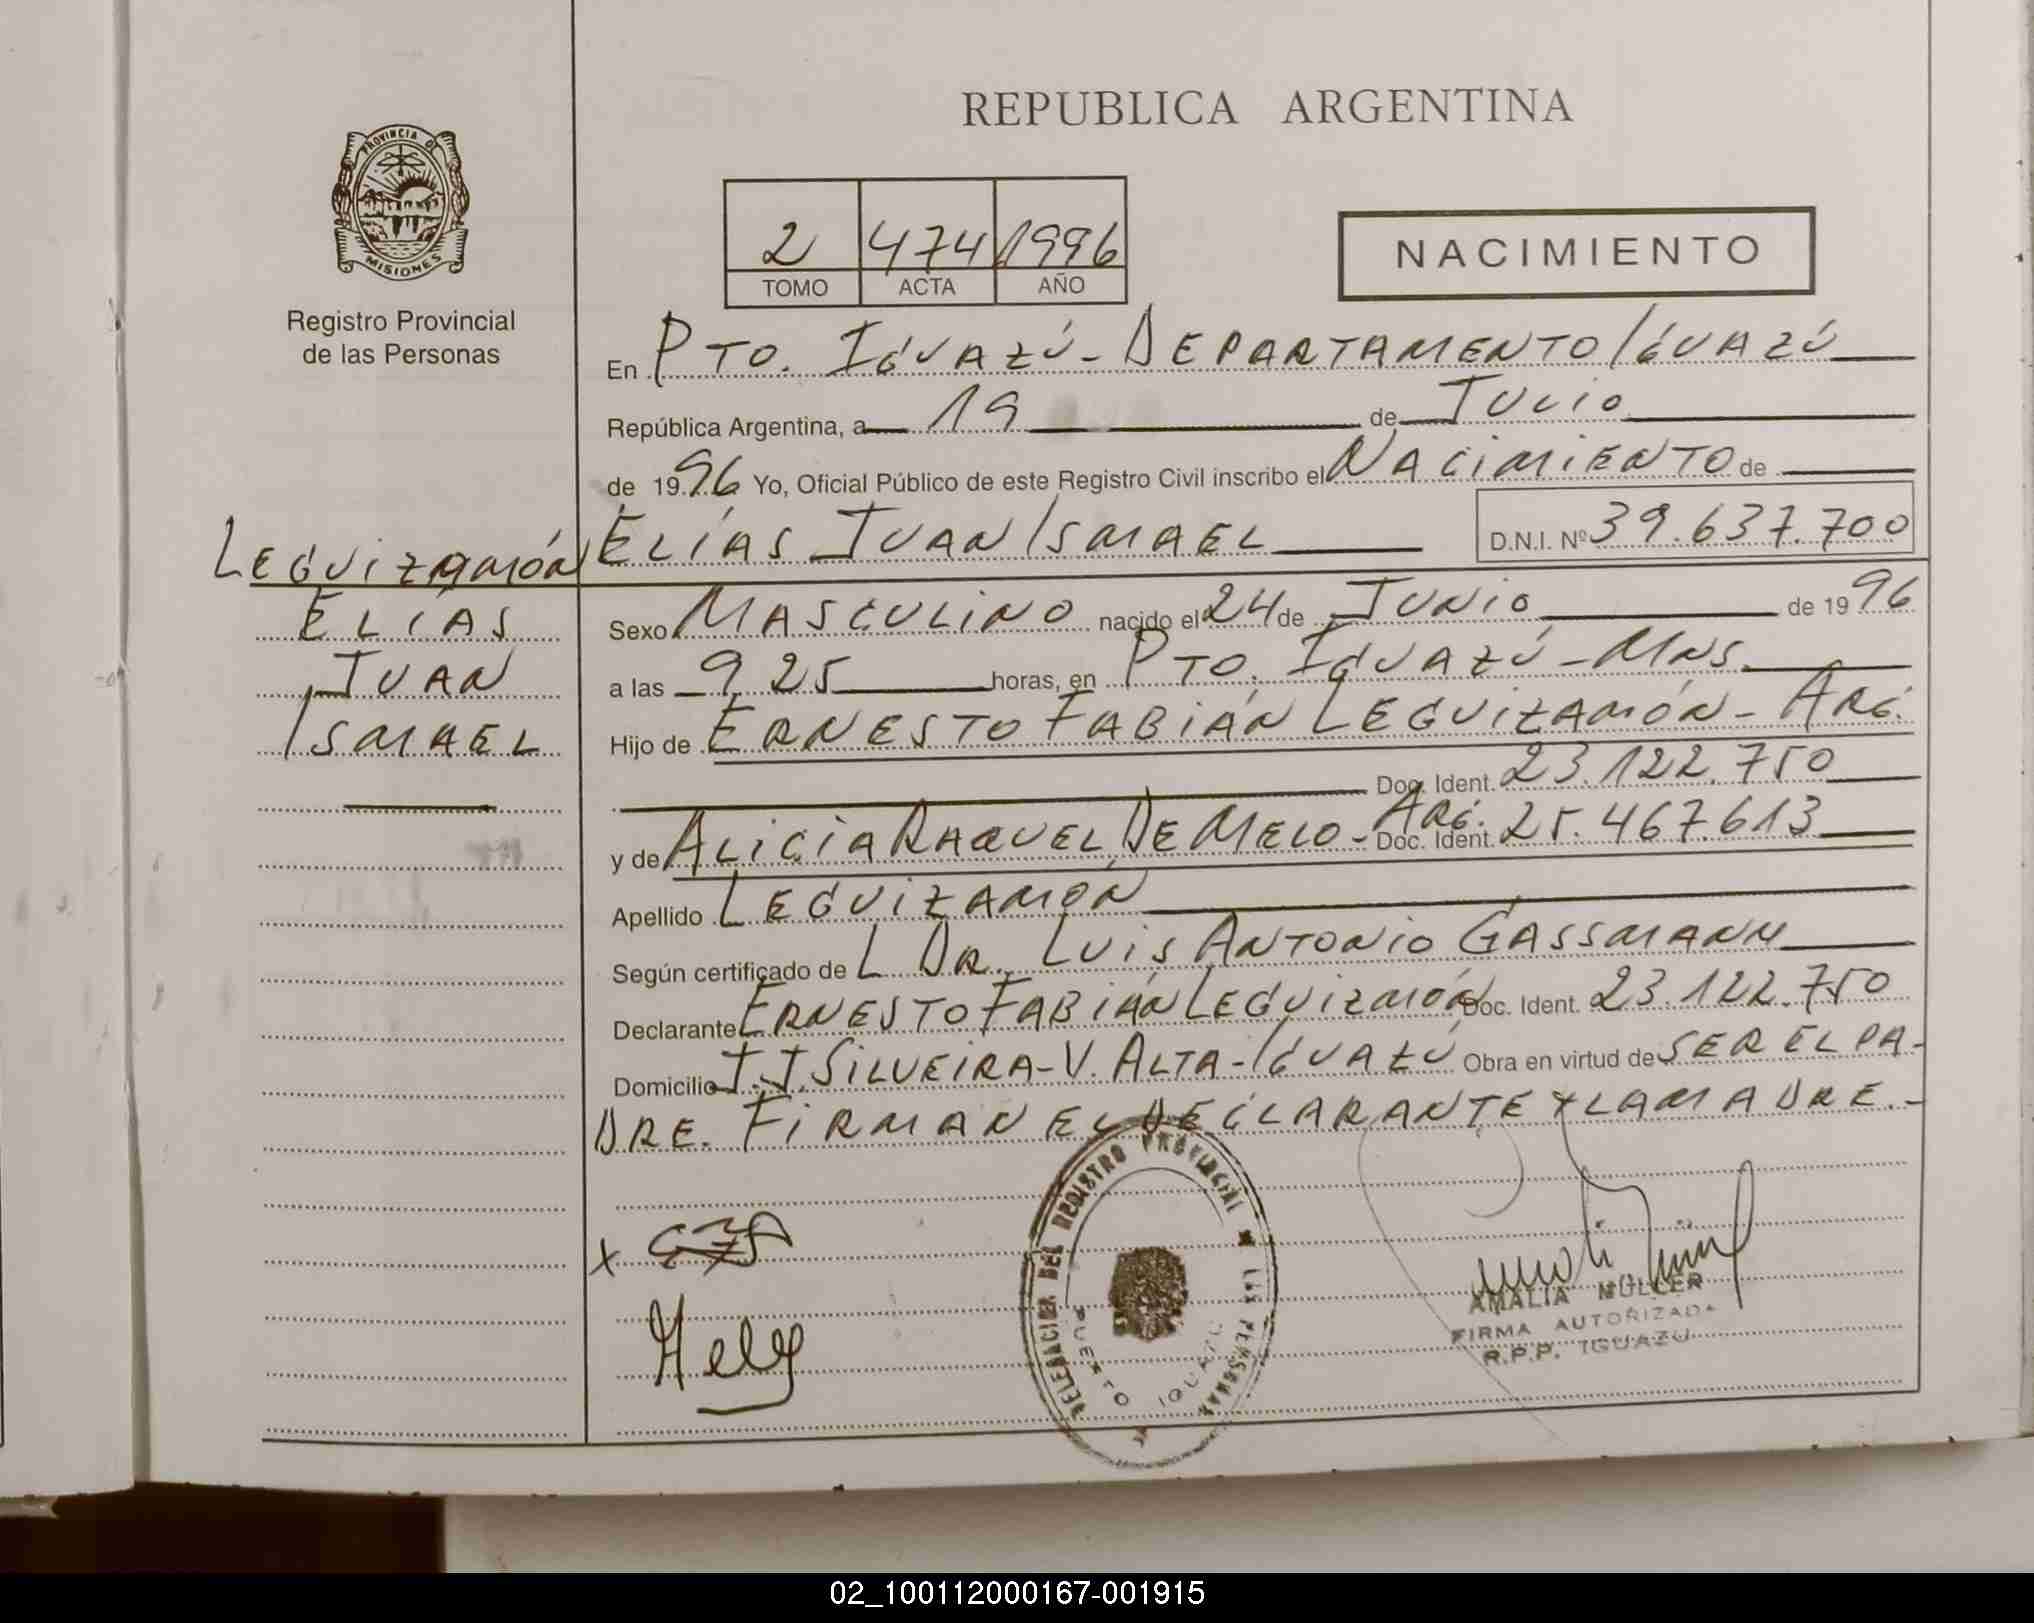 REPUBLICA ARGENTINA
PROVINCIA D
MISIONES
Registro Provincial
de las Personas
2 474 1996
TOMO ACTA AÑO
NACIMIENTO
En PTO. IGUAZÚ - DEPARTAMENTO IGUAZÚ
República Argentina, a 19 de JULIO
de 1996 Yo, Oficial Público de este Registro Civil inscribo el NACIMIENTO de
ELÍAS JUAN ISMAEL D.N.I. Nº 39.637.700
LEGUIZAMÓN
ELÍAS
JUAN
ISMAEL
Sexo MASCULINO nacido el 24 de JUNIO de 1996
a las 9 25 horas, en PTO. IGUAZÚ - MNS.
Hijo de ERNESTO FABIÁN LEGUIZAMÓN - ARG.
Doc. Ident. 23.122.750
y de ALICIA RAQUEL DE MELO - ARG. Doc. Ident. 25.467.613
Apellido LEGUIZAMÓN
Según certificado de L DR. LUIS ANTONIO GASSMANN
Declarante ERNESTO FABIÁN LEGUIZMÓN Doc. Ident. 23.122.750
Domicilio J.J SILVEIRA - V. ALTA - IGUAZÚ Obra en virtud de SER EL PA-
DRE. FIRMAN EL DECLARANTE Y LA MADRE.-
X
DELEGACION DEL REGISTRO PROVINCIAL DE LAS PERSONAS
PUERTO IGUAZU
AMALIA MULLER
FIRMA AUTORIZADA
R.P.P. IGUAZU
02_100112000167-001915